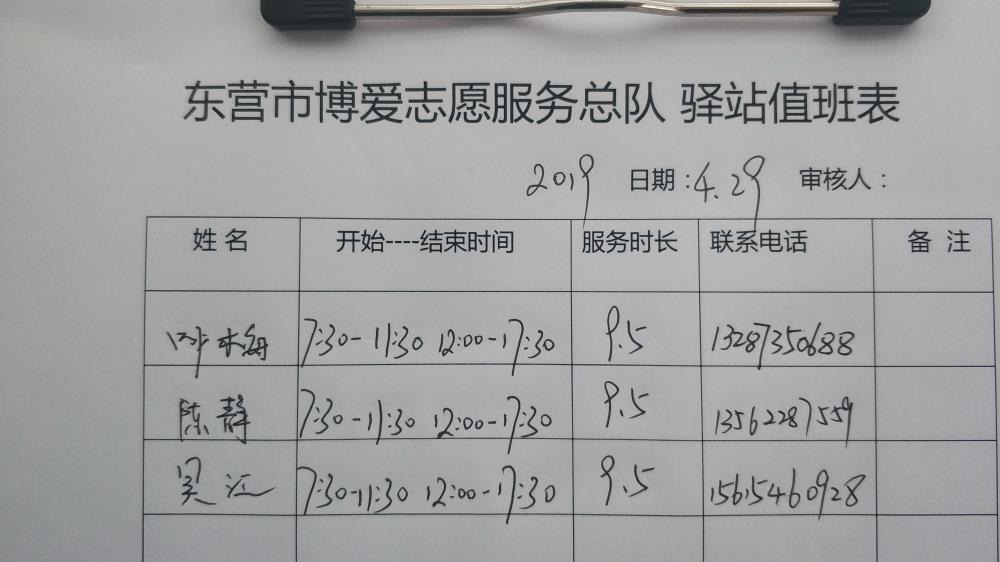 东营市博爱志愿服务总队 驿站值班表
2019 日期:4.29 审核人:
姓名 开始----结束时间 服务时长 联系电话 备注
7:30-11:30 12:00-17:30 9.5 13287350688
陈静 7:30-11:30 12:00-17:30 9.5 13562287559
吴江 7:30-11:30 12:00-17:30 9.5 15615460928